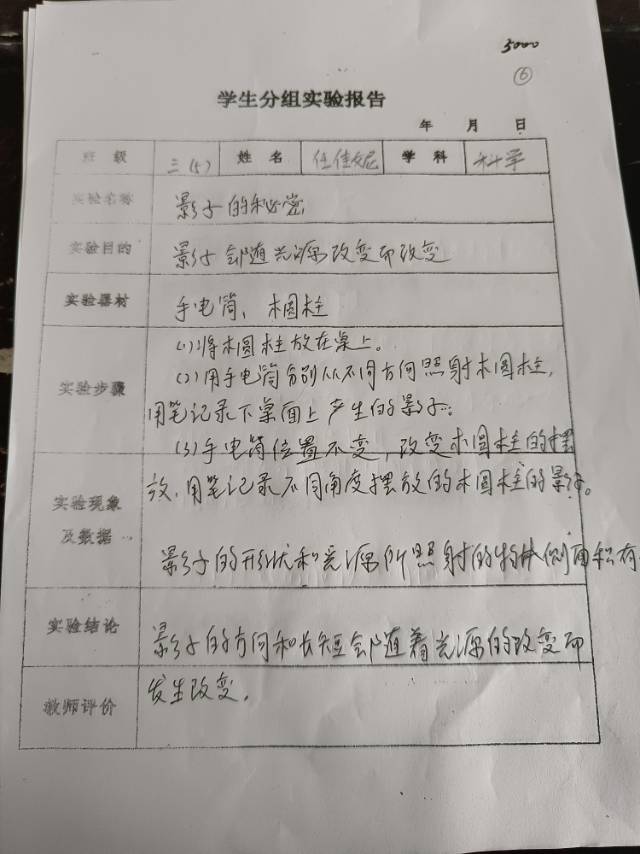 5000
⑥
学生分组实验报告
年 月 日
班 级 三(5) 姓 名 任佳妮 学 科 科学
实验名称 影子的秘密
实验目的 影子会随光源改变而改变
实验器材 手电筒、木圆柱
实验步骤 (1)将木圆柱放在桌上。
(2)用手电筒分别从不同方向照射木圆柱,
用笔记录下桌面上产生的影子。
(3)手电筒位置不变,改变木圆柱的摆
放,用笔记录不同角度摆放的木圆柱的影子。
实验现象
及数据
影子的形状和光源所照射的物体侧面积有
实验结论 影子的方向和长短会随着光源的改变而
发生改变。
教师评价